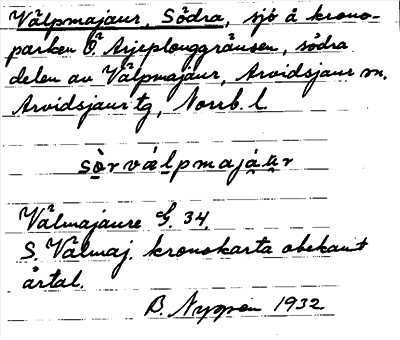 Välpmajaur, Södra, sjö å krono-
parken Ö. Arjeplouggränsen, södra
delen av Välpmajaur, Arvidsjaur sn.
Arvidsjaur tg, Norrb. l.
sòrvælpmajáur
Välmajaure G. 34.
S. Välmaj. kronokarta obekant
årtal.
B. Nyppén 1932